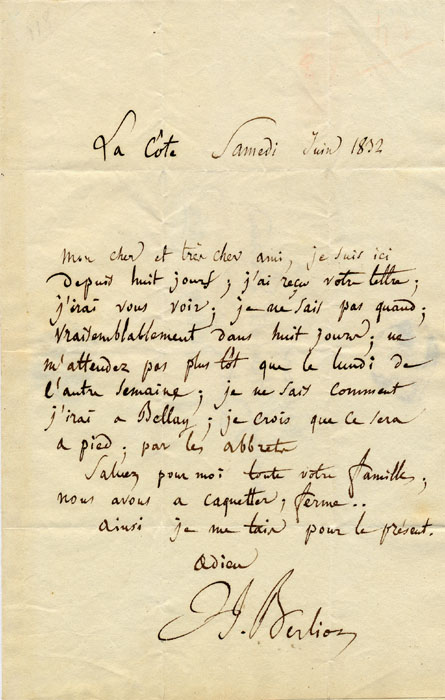 La Côte Samedi Juin 1832
Mon cher et très cher ami, je suis ici
depuis huit jours; j'ai reçu votre lettre;
j'irai vous voir; je ne sais pas quand;
vraisemblablement dans huit jours; ne
m'attendez pas plus tôt que le lundi de
l'autre semaine; je ne sais comment
j'irai a Bellay; je crois que ce sera
a pied; par les abbrets
Saluez pour moi toute votre famille;
nous avons a caquetter, ferme..
Ainsi je me tais pour le présent.
Adieu
H. Berlioz